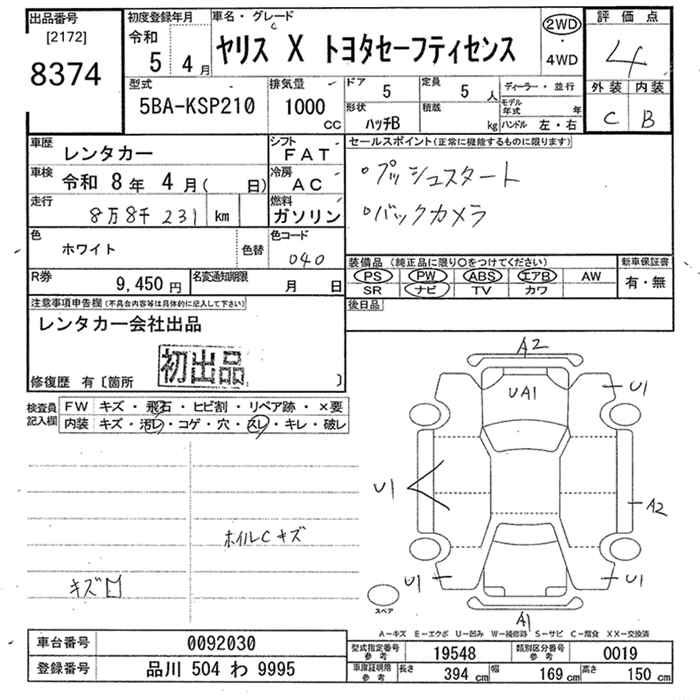 出品番号
[2172]
8374
初度登録年月
令和
5 4月
車名・グレード
ヤリス X トヨタセーフティセンス
2WD
・
4WD
評価点
4
外装 内装
C B
型式
5BA-KSP210
排気量
1000
CC
ドア
5
定員
5 人
形状
ハッチB
積載
kg
ディーラー・並行
モデル年式 年
ハンドル 左・右
車歴
レンタカー
シフト
FAT
車検
令和 8年 4月( 日)
冷房
AC
走行
8万8千231 km
燃料
ガソリン
色
ホワイト
色替
色コード
040
R券
9,450円
名変通知期限
月 日
セールスポイント(正常に機能するものに限ります)
・プッシュスタート
・バックカメラ
装備品 (純正品に限り○をつけてください)
PS PW ABS エアB AW
SR ナビ TV カワ
新車保証書
有・無
後日品
注意事項申告欄(不具合内容等は具体的に記入して下さい)
レンタカー会社出品
初出品
修復歴 有〔箇所 〕
検査員
記入欄
FW キズ・飛石・ヒビ割・リペア跡・×要
内装 キズ・汚レ・コゲ・穴・スレ・キレ・破レ
ホイルCキズ
キズ
A2
UA1
U1
U1
A2
U1
U1
A1
スペア
A-キズ E-エクボ U-凹み W-補修跡 S-サビ C-腐食 XX-交換済
車台番号
0092030
登録番号
品川 504 わ 9995
型式指定番号
参考
19548
類別区分番号
参考
0019
車庫証明用
参考
長さ
394 cm
幅
169 cm
高さ
150 cm